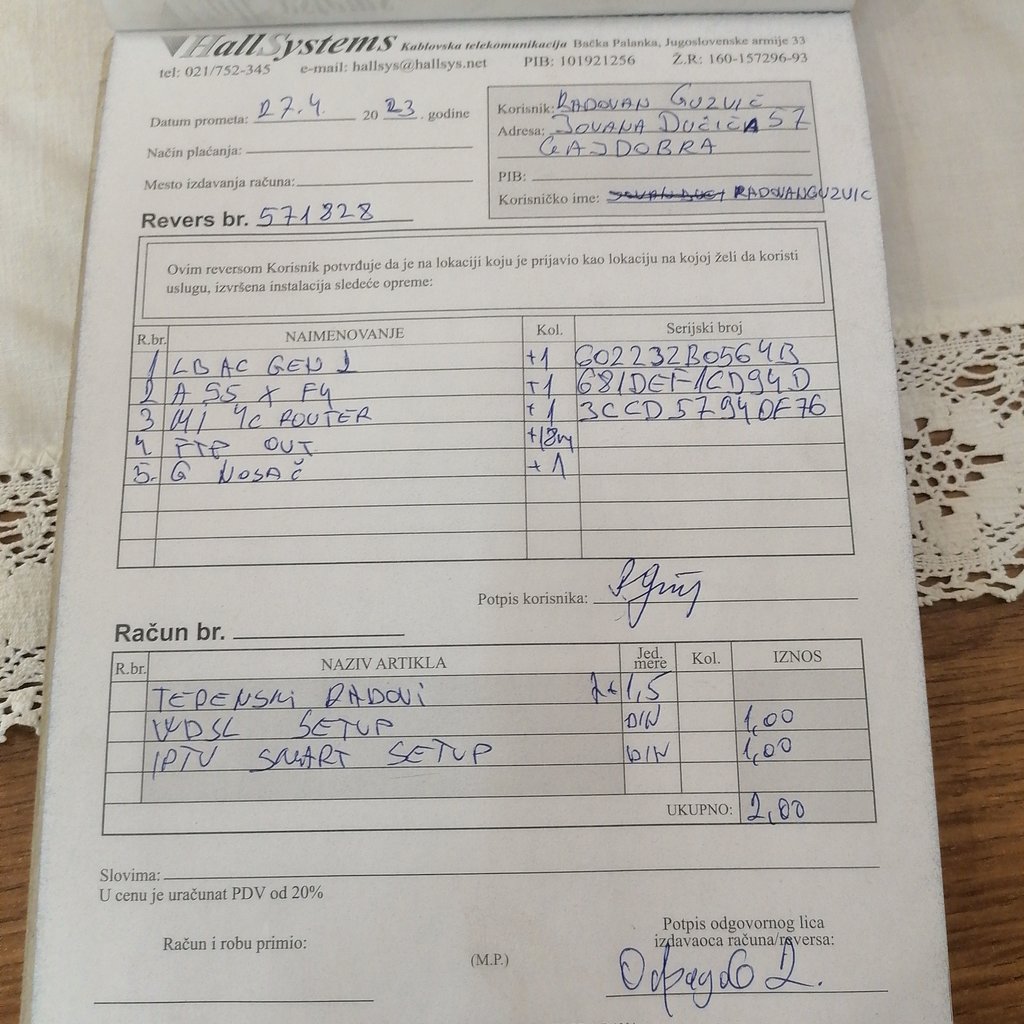 HallSystems Kablovska telekomunikacija Bačka Palanka, Jugoslovenske armije 33
tel: 021/752-345 e-mail: hallsys@hallsys.net PIB: 101921256 Ž.R: 160-157296-93
Datum prometa: 27.4. 2023. godine
Način plaćanja:
Mesto izdavanja računa:
Revers br. 571828
Korisnik: RADOVAN GUZVIĆ
Adresa: JOVANA DUČIĆA 57
GAJDOBRA
PIB:
Korisničko ime: RADOVANGUZVIC
Ovim reversom Korisnik potvrđuje da je na lokaciji koju je prijavio kao lokaciju na kojoj želi da koristi
uslugu, izvršena instalacija sledeće opreme:
R.br. NAIMENOVANJE Kol. Serijski broj
1 LBAC GEN 2 +1 602232B0564B
2 A 95 X F4 +1 681DEF1CD94D
3 MI 4C ROUTER +1 3CCD5794DF76
4 FTP OUT +18m
5. G NOSAČ +1
Potpis korisnika:
Račun br.
R.br. NAZIV ARTIKLA Jed. mere Kol. IZNOS
TERENSKI RADOVI 2x1,5
WDSL SETUP DIN 1,00
IPTV SMART SETUP DIN 1,00
UKUPNO: 2,00
Slovima:
U cenu je uračunat PDV od 20%
Račun i robu primio:
(M.P.)
Potpis odgovornog lica
izdavaoca računa/reversa: